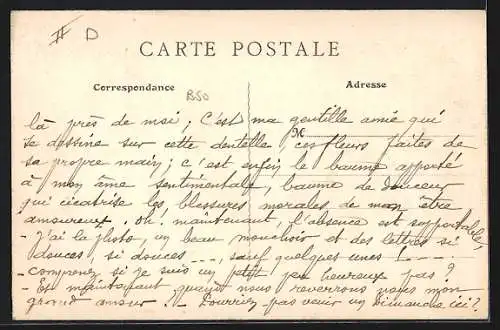 # D
CARTE POSTALE
Correspondance
Adresse
B50
M
là près de moi ; c'est ma gentille amie qui
se dessine sur cette dentelle, ces fleurs faites de
sa propre main ; c'est enfin le baume apporté
à mon âme sentimentale, baume de douceur
qui cicatrise les blessures morales de mon être
amoureux. Oh ! maintenant, l'absence est supportable,
- J'ai la photo, un beau mouchoir et des lettres si
douces, si douces ---, sauf quelques unes ! ---
- comprenez si je suis un petit peu heureux pas ?
- Et maintenant quand nous reverrons nous mon
grand amour ? - Pourriez pas venir un Dimanche ici ?